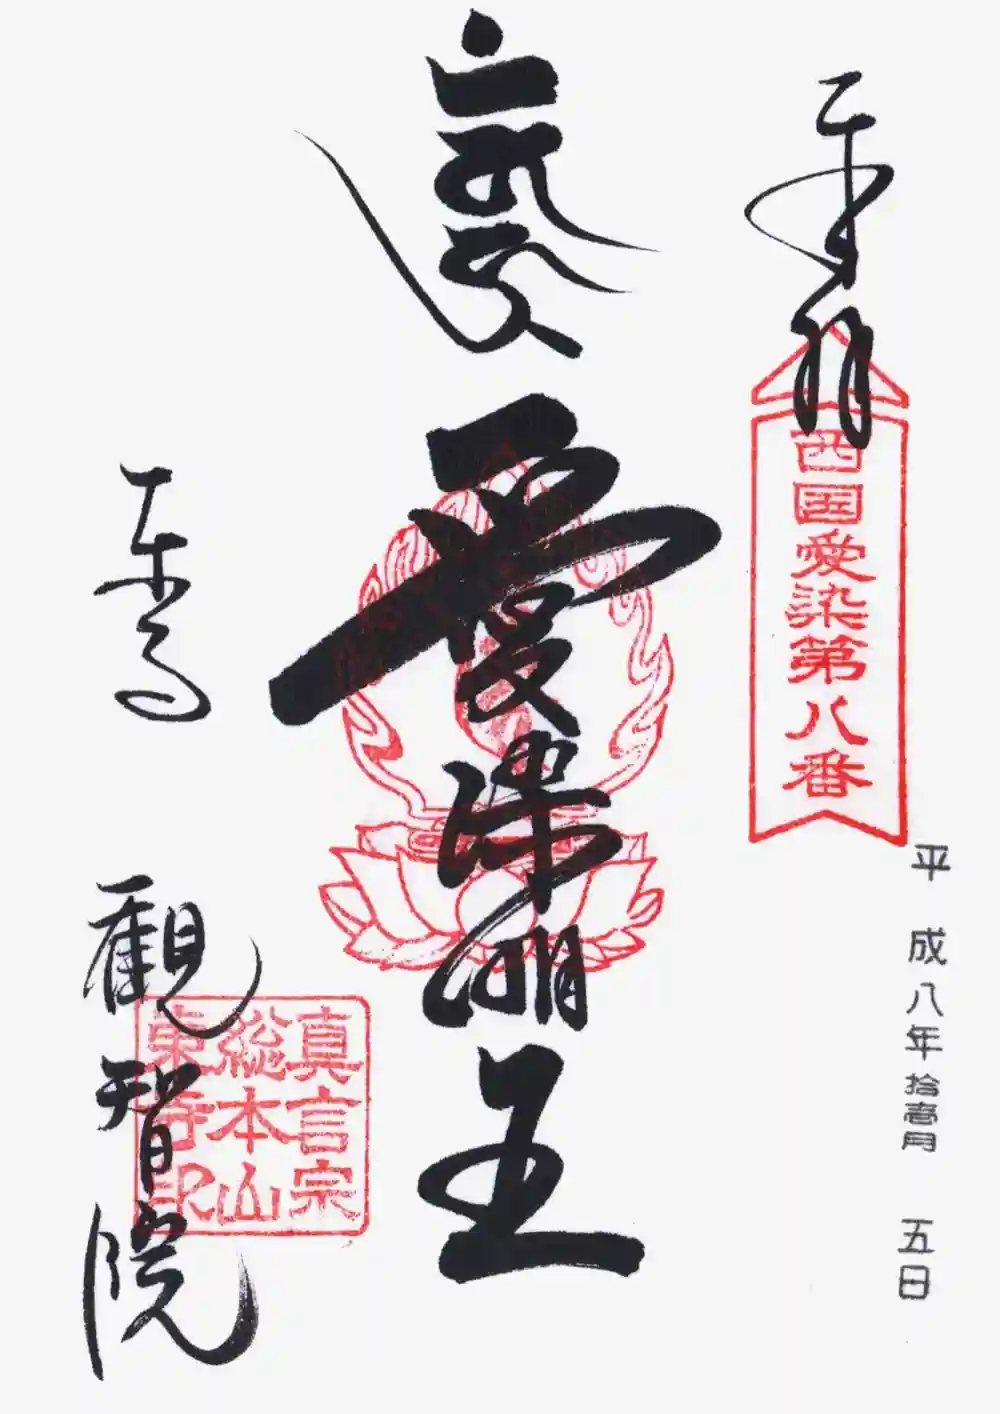 奉拝
西国愛染第八番
平成八年拾壱月 五日
愛染明王
東寺
觀智院
真言宗
総本山
東寺印